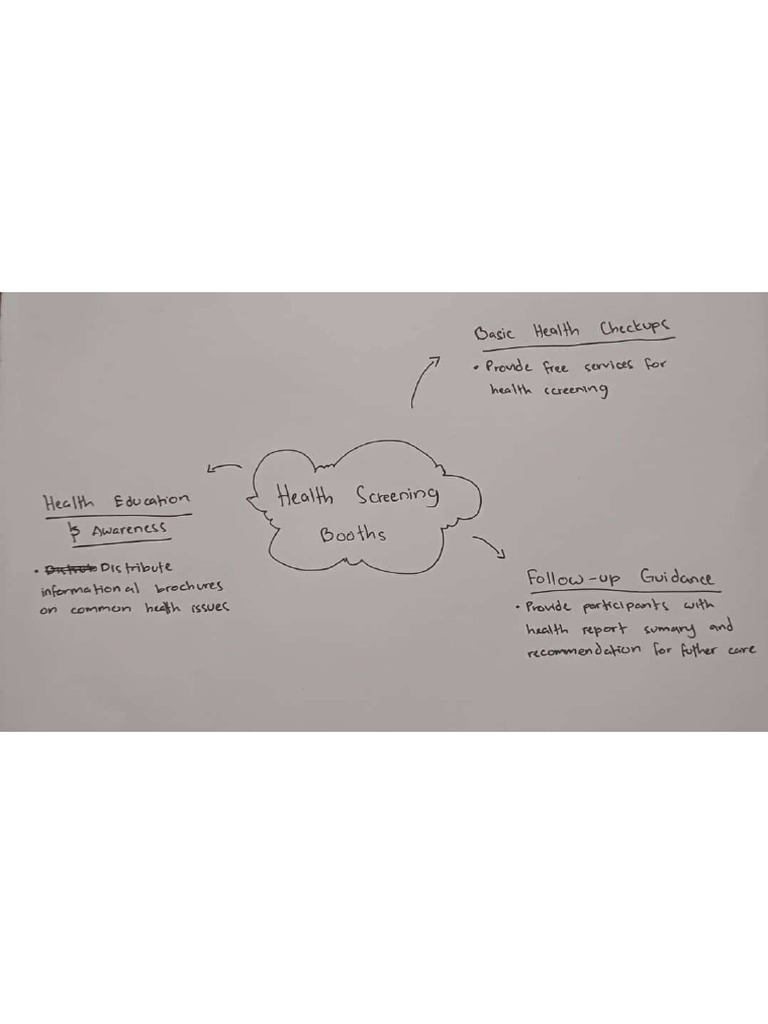 Basic Health Checkups
• Provide free services for
health screening
Health Screening
Booths
Health Education
& Awareness
• Distribute
informational brochures
on common health issues
Follow-up Guidance
• Provide participants with
health report sumary and
recommendation for futher care